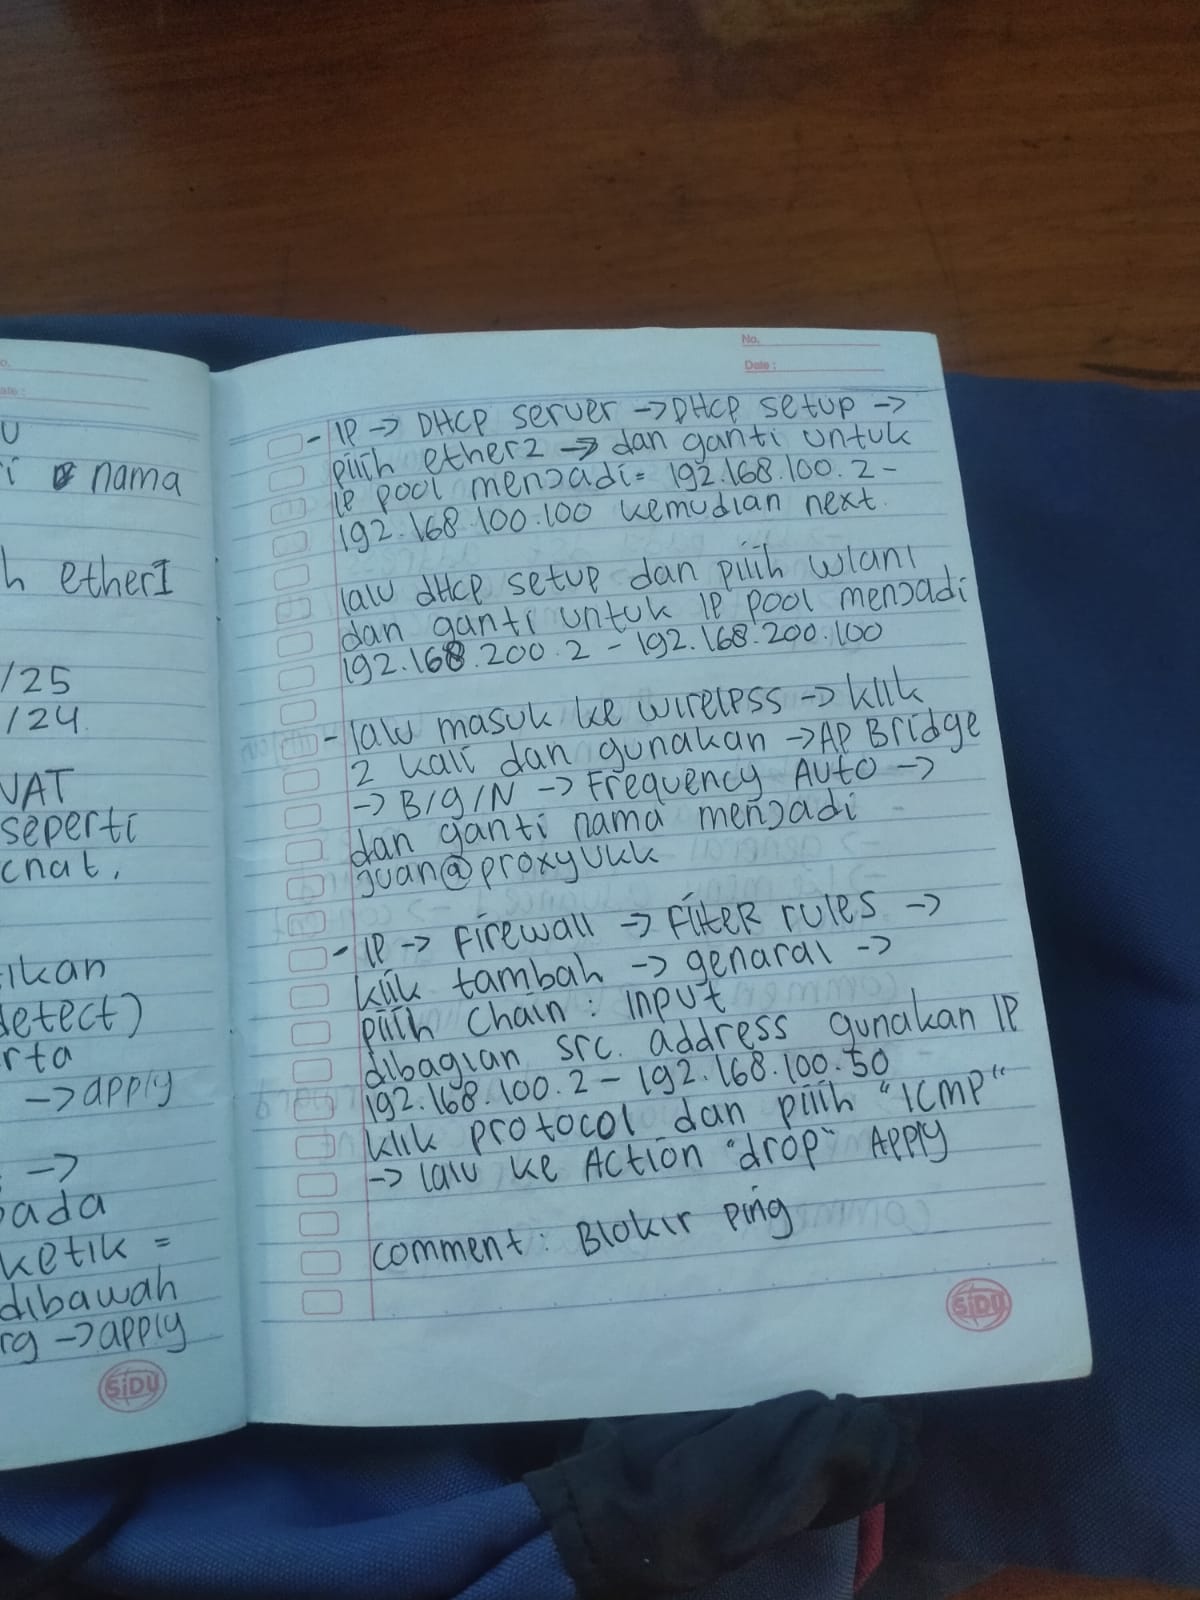 U
i nama
h etherI
/25
/24.
NAT
seperti
cnat,
ikan
detect)
rta
-> apply
->
pada
ketik =
dibawah
rg -> apply
SiDU
No.
Date :
- IP -> DHCP server -> DHCP setup ->
pilih ether2 -> dan ganti untuk
IP pool menjadi= 192.168.100.2 -
192.168.100.100 kemudian next.
lalu dHCP setup dan pilih wlan1
dan ganti untuk IP pool menjadi
192.168.200.2 - 192.168.200.100
- lalu masuk ke wireless -> klik
2 kali dan gunakan -> AP Bridge
-> B/g/N -> Frequency Auto ->
dan ganti nama menjadi
juan@proxyukk
- IP -> Firewall -> Filter rules ->
klik tambah -> genaral ->
pilih Chain : input
dibagian src. address gunakan IP
192.168.100.2 - 192.168.100.50
klik protocol dan pilih "ICMP"
-> lalu ke Action "drop" Apply
comment : Blokir ping
SiDU